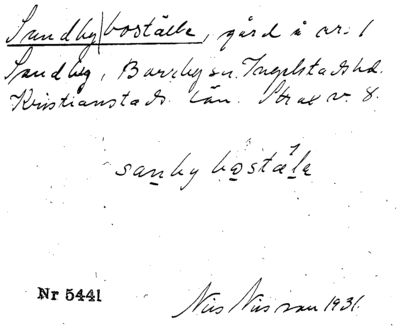 Sandby|boställe, gård å nr. 1
Sandby, Borrby sn. Ingelstads hd.
Kristianstads län. Strax v. 8.
sanby bostäle
Nr 5441
Nils Nilsson 1931.